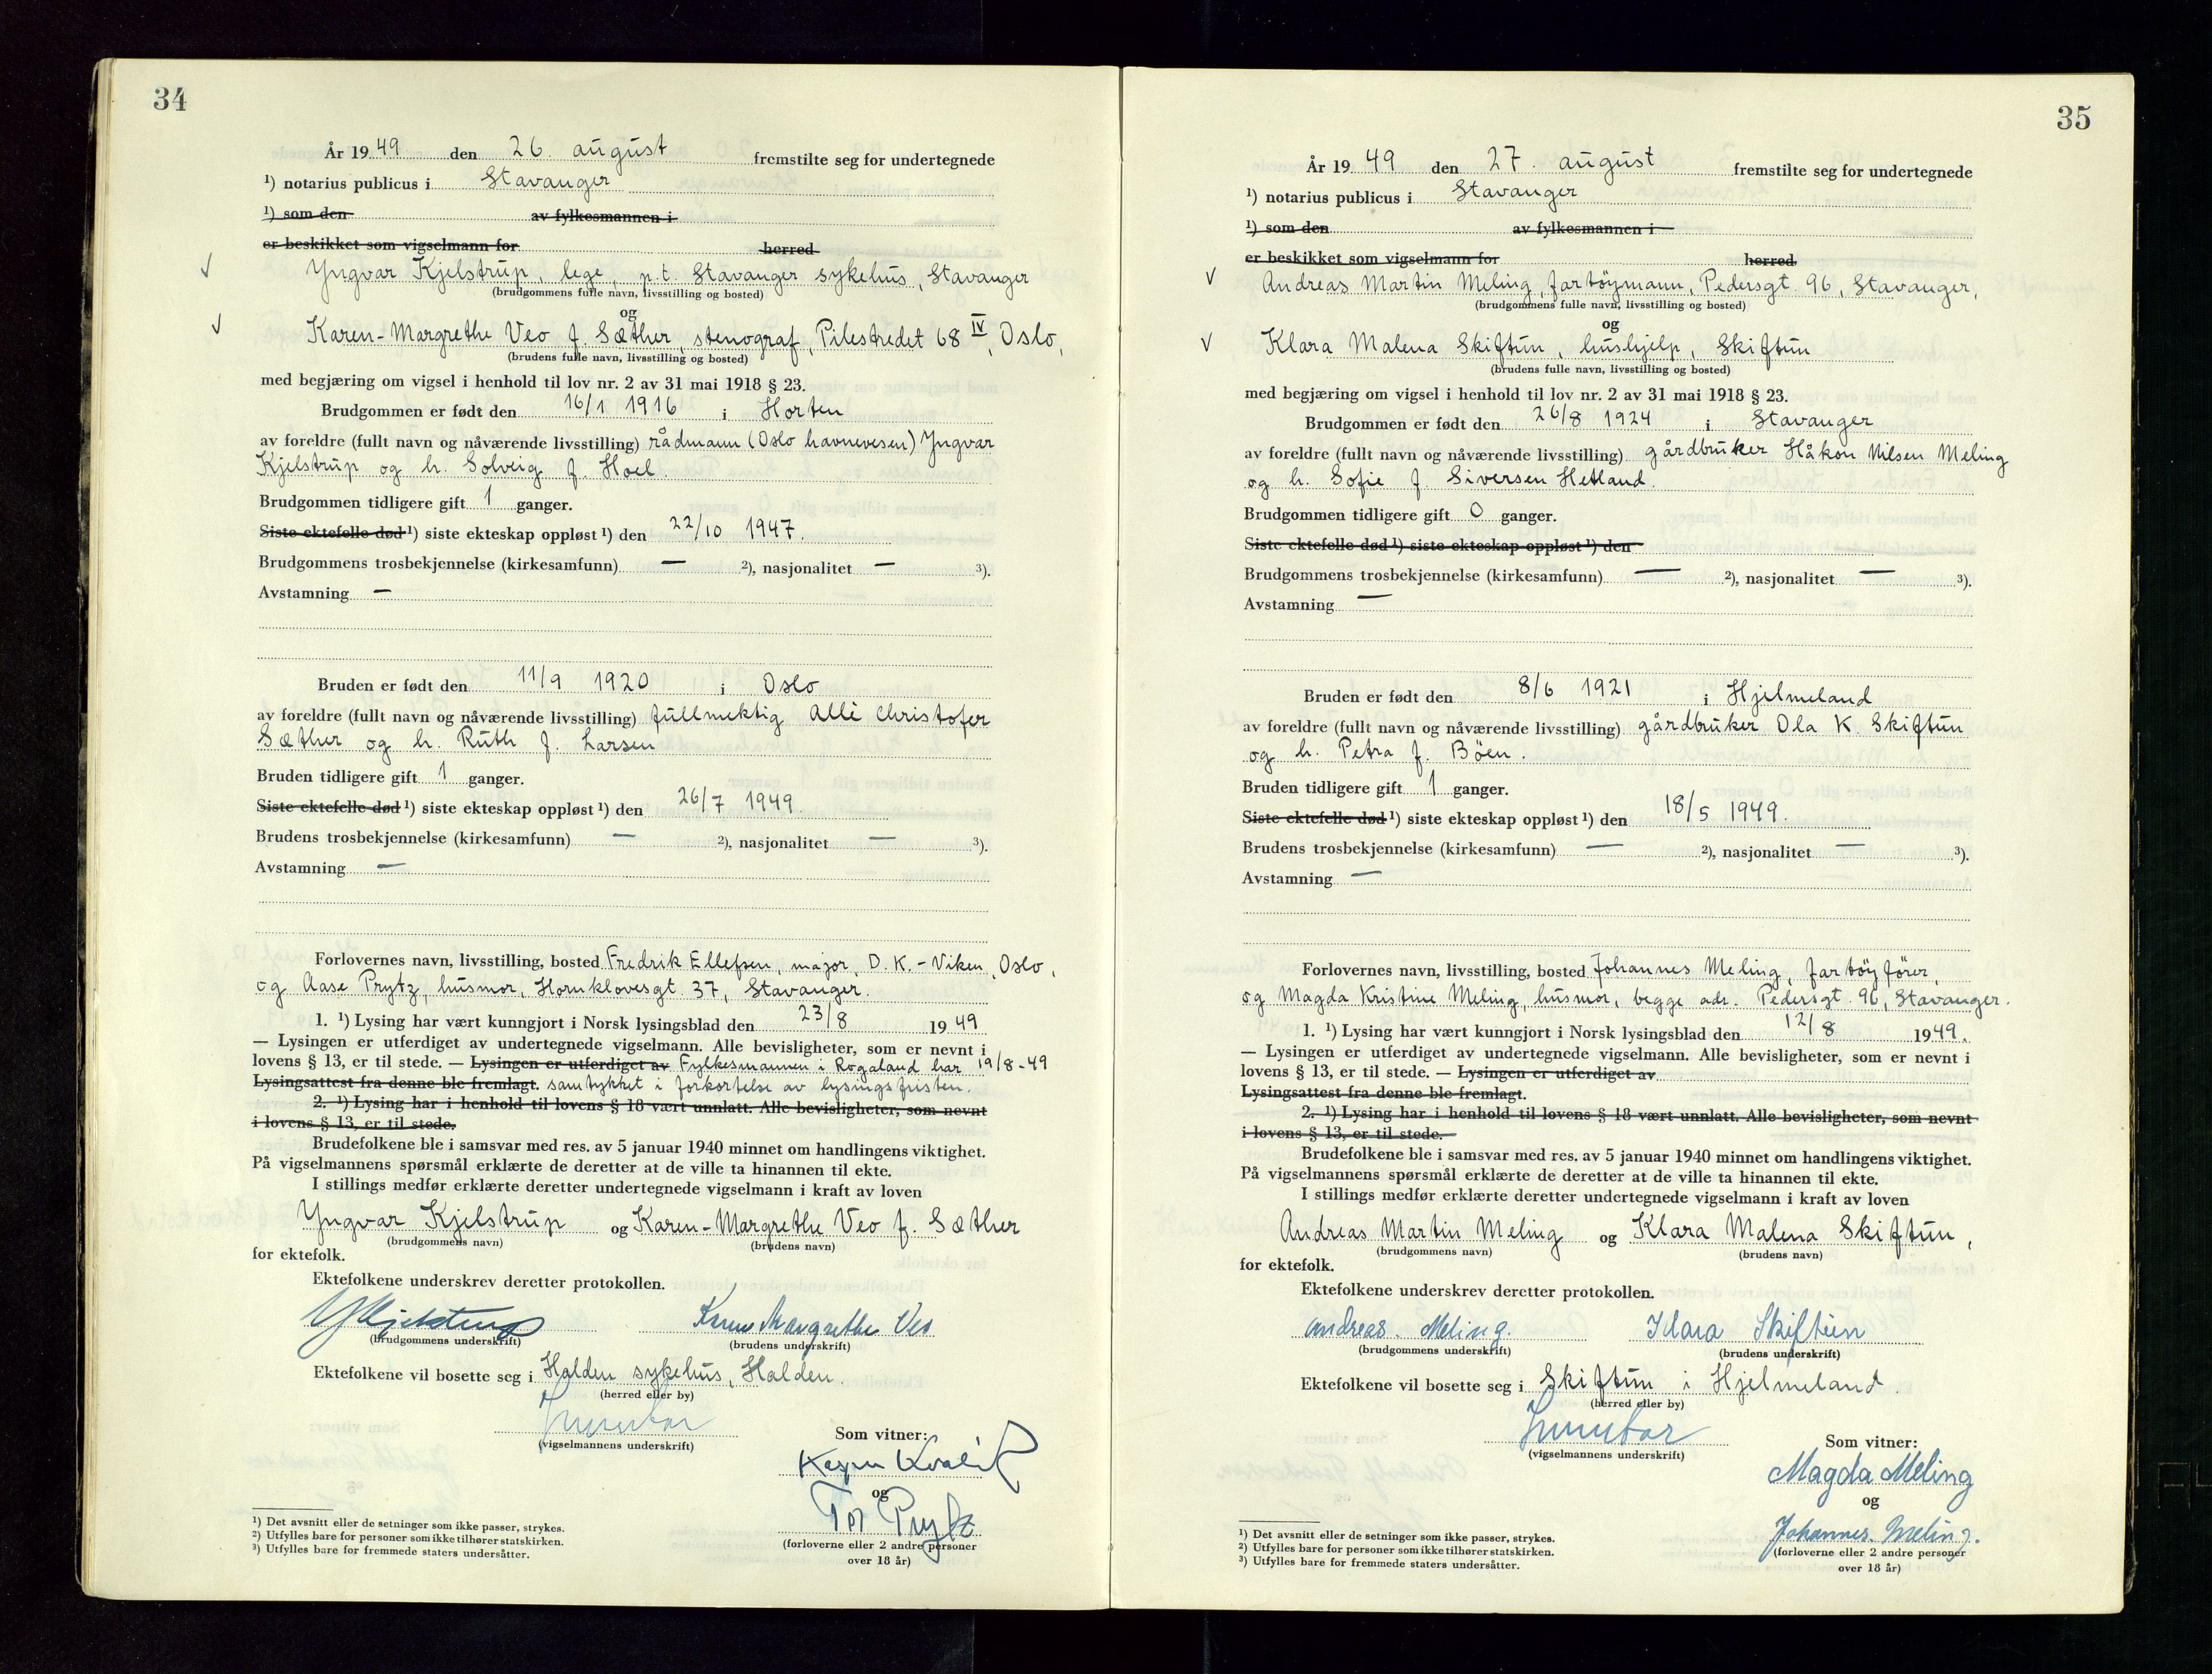 34
År 19 49 den 26. august fremstilte seg for undertegnede
¹) notarius publicus i Stavanger
¹) som den av fylkesmannen i
er beskikket som vigselmann for herred
√ Yngvar Kjelstrup, lege, p.t. Stavanger sykehus, Stavanger
(brudgommens fulle navn, livsstilling og bosted)
og
√ Karen-Margrethe Veo f. Sæther, stenograf, Pilestredet 68 IV, Oslo,
(brudens fulle navn, livsstilling og bosted)
med begjæring om vigsel i henhold til lov nr. 2 av 31 mai 1918 § 23.
Brudgommen er født den 16/1 1916 i Horten
av foreldre (fullt navn og nåværende livsstilling) rådmann (Oslo havnevesen) Yngvar
Kjelstrup og h. Solveig f. Hoel.
Brudgommen tidligere gift 1 ganger.
Siste ektefelle død ¹) siste ekteskap oppløst ¹) den 22/10 1947.
Brudgommens trosbekjennelse (kirkesamfunn) — ²), nasjonalitet — ³).
Avstamning —
Bruden er født den 11/9 1920 i Oslo
av foreldre (fullt navn og nåværende livsstilling) fullmektig Alle Christofer
Sæther og h. Ruth f. Larsen
Bruden tidligere gift 1 ganger.
Siste ektefelle død ¹) siste ekteskap oppløst ¹) den 26/7 1949.
Brudens trosbekjennelse (kirkesamfunn) — ²), nasjonalitet — ³).
Avstamning —
Forlovernes navn, livsstilling, bosted Fredrik Ellefsen, major, D.K.-Viken, Oslo,
og Aase Prytz, husmor, Hornklovesgt. 37, Stavanger.
1. ¹) Lysing har vært kunngjort i Norsk lysingsblad den 23/8 19 49
— Lysingen er utferdiget av undertegnede vigselmann. Alle bevisligheter, som er nevnt i
lovens § 13, er til stede. — Lysingen er utferdiget av Fylkesmannen i Rogaland har 19/8-49
Lysingsattest fra denne ble fremlagt. samtykket i forkortelse av lysingsfristen.
2. ¹) Lysing har i henhold til lovens § 18 vært unnlatt. Alle bevisligheter, som nevnt
i lovens § 13, er til stede.
Brudefolkene ble i samsvar med res. av 5 januar 1940 minnet om handlingens viktighet.
På vigselmannens spørsmål erklærte de deretter at de ville ta hinannen til ekte.
I stillings medfør erklærte deretter undertegnede vigselmann i kraft av loven
Yngvar Kjelstrup og Karen-Margrethe Veo f. Sæther
(brudgommens navn) (brudens navn)
for ektefolk.
Ektefolkene underskrev deretter protokollen.
YKjelstrup Karen Margrethe Veo
(brudgommens underskrift) (brudens underskrift)
Ektefolkene vil bosette seg i Halden sykehus, Halden.
(herred eller by)
(vigselmannens underskrift)
Som vitner:
og
Tor Prytz
(forloverne eller 2 andre personer
over 18 år)
¹) Det avsnitt eller de setninger som ikke passer, strykes.
²) Utfylles bare for personer som ikke tilhører statskirken.
³) Utfylles bare for fremmede staters undersåtter.
35
År 19 49 den 27. august fremstilte seg for undertegnede
¹) notarius publicus i Stavanger
¹) som den av fylkesmannen i
er beskikket som vigselmann for herred
√ Andreas Martin Meling, fartöymann, Pedersgt. 96, Stavanger,
(brudgommens fulle navn, livsstilling og bosted)
og
√ Klara Malena Skiftun, hushjelp, Skiftun
(brudens fulle navn, livsstilling og bosted)
med begjæring om vigsel i henhold til lov nr. 2 av 31 mai 1918 § 23.
Brudgommen er født den 26/8 1924 i Stavanger
av foreldre (fullt navn og nåværende livsstilling) gårdbruker Håkon Nilsen Meling
og h. Sofie f. Siversen Hetland.
Brudgommen tidligere gift 0 ganger.
Siste ektefelle død ¹) siste ekteskap oppløst ¹) den
Brudgommens trosbekjennelse (kirkesamfunn) — ²), nasjonalitet — ³).
Avstamning —
Bruden er født den 8/6 1921 i Hjelmeland
av foreldre (fullt navn og nåværende livsstilling) gårdbruker Ola K. Skiftun
og h. Petra f. Böen.
Bruden tidligere gift 1 ganger.
Siste ektefelle død ¹) siste ekteskap oppløst ¹) den 18/5 1949.
Brudens trosbekjennelse (kirkesamfunn) — ²), nasjonalitet — ³).
Avstamning —
Forlovernes navn, livsstilling, bosted Johannes Meling, fartöyförer,
og Magda Kristine Meling, husmor, begge adr. Pedersgt. 96, Stavanger.
1. ¹) Lysing har vært kunngjort i Norsk lysingsblad den 12/8 1949.
— Lysingen er utferdiget av undertegnede vigselmann. Alle bevisligheter, som er nevnt i
lovens § 13, er til stede. — Lysingen er utferdiget av
Lysingsattest fra denne ble fremlagt.
2. ¹) Lysing har i henhold til lovens § 18 vært unnlatt. Alle bevisligheter, som nevnt
i lovens § 13, er til stede.
Brudefolkene ble i samsvar med res. av 5 januar 1940 minnet om handlingens viktighet.
På vigselmannens spørsmål erklærte de deretter at de ville ta hinannen til ekte.
I stillings medfør erklærte deretter undertegnede vigselmann i kraft av loven
Andreas Martin Meling og Klara Malena Skiftun,
(brudgommens navn) (brudens navn)
for ektefolk.
Ektefolkene underskrev deretter protokollen.
Andreas. Meling. Klara Skiftun
(brudgommens underskrift) (brudens underskrift)
Ektefolkene vil bosette seg i Skiftun i Hjelmeland.
(herred eller by)
(vigselmannens underskrift)
Som vitner:
Magda Meling
og
Johannes. Meling.
(forloverne eller 2 andre personer
over 18 år)
¹) Det avsnitt eller de setninger som ikke passer, strykes.
²) Utfylles bare for personer som ikke tilhører statskirken.
³) Utfylles bare for fremmede staters undersåtter.